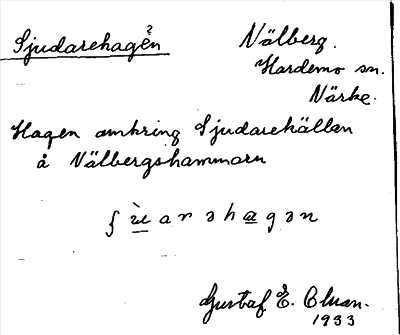 Sjudarehagen ?
Välberg.
Hardemo sn.
Närke.
Hagen omkring Sjudarekällan
å Välbergshammarn
ʃ ù a r ə h a g ə n
Gustaf E.
1933